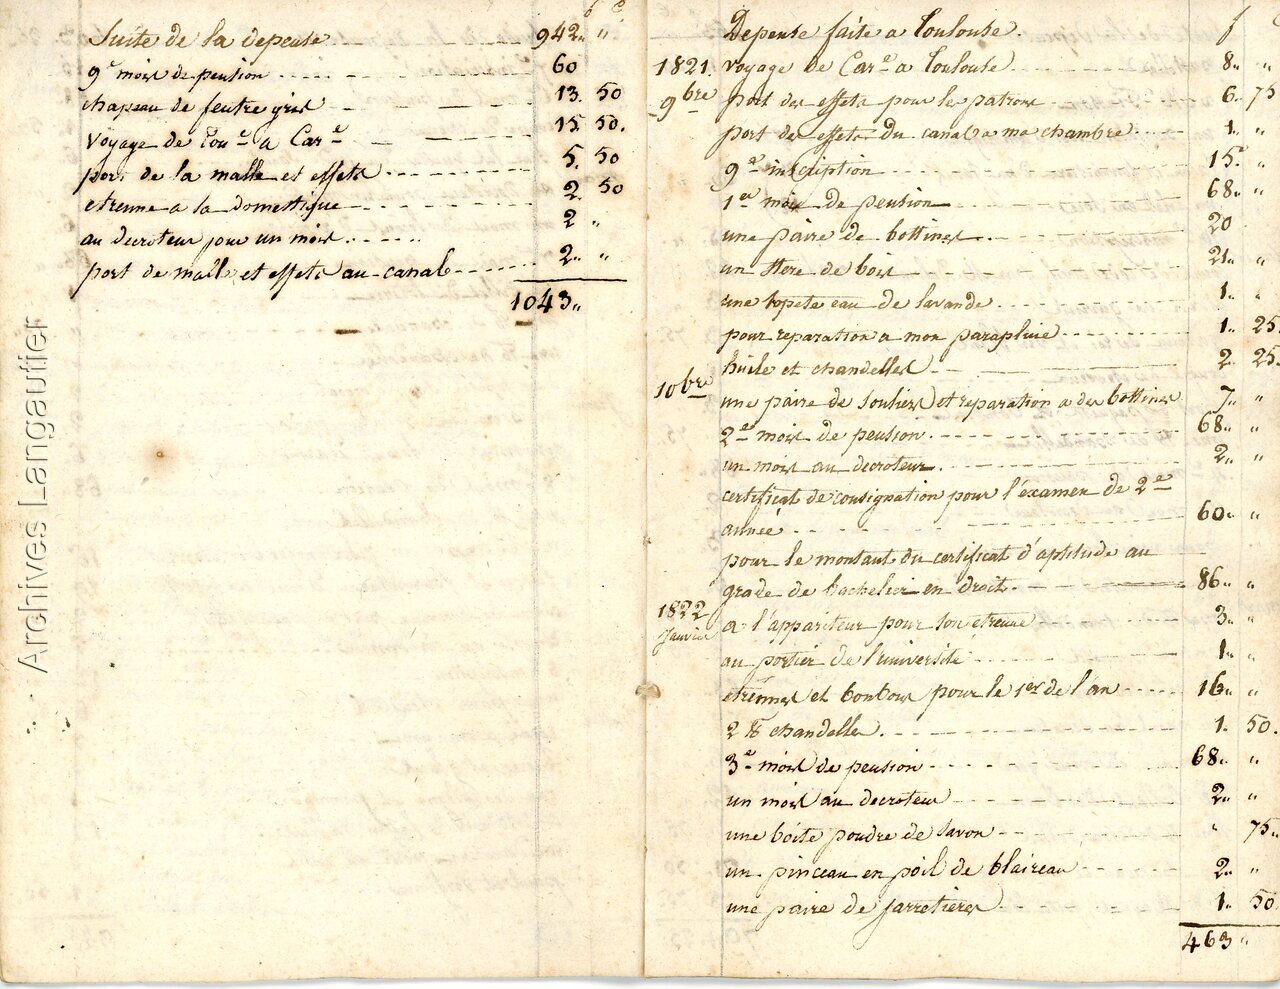 b c
Suite de la depense 942 "
9e mois de pension 60
chapeau de feutre gris 13. 50
voyage de Toue a Care 15. 50.
port de la malle et effets 5. 50
etrenne a la domestique 2. 50
au decroteur pour un mois 2 "
port de malle et effets au canal 2. "
1043 "
Depense faite a Toulouse f
1821. voyage de Care a Toulouse 8 "
9bre port des effets pour le patron 6. 75
port des effets du canal a ma chambre 1 "
9e inscription 15 "
1er mois de pension 68 "
une paire de bottines 20
un stere de bois 21 "
une topete eau de lavande 1. "
pour reparation a mon parapluie 1. 25.
huile et chandelles 2. 25.
10bre une paire de souliers et reparation a des bottines 7 "
2e mois de pension 68 "
un mois au decroteur 2 "
certificat de consignation pour l'examen de 2e
année 60 "
pour le montant du certificat d'aptitude au
grade de bachelier en droit 86 "
1822
Janvier a l'appariteur pour son etrenne 3 "
au portier de l'université 1 "
etrennes et bonbons pour le 1er de l'an 16 "
2 ℔ chandelles 1. 50.
3e mois de pension 68 "
un mois au decroteur 2 "
une boite poudre de savon " 75
un pinceau en poil de blaireau 2 "
une paire de jarretieres 1. 50
463 "
Archives Langautier